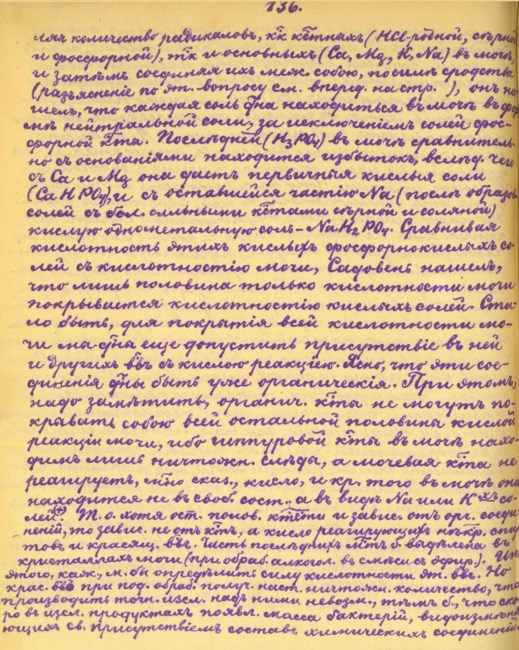 136.
ляя количество радикаловъ, к҃к к҃тныхъ (HCl-родной, сѣрной
и фосфорной), т҃к и основныхъ (Ca, Mg, K, Na) въ мочѣ,
и затѣмъ соединяя ихъ меж. собою, по силѣ сродства
(разъясненіе по эт. вопросу см. вперед. на стр. ), онъ на-
шелъ, что каждая соль д҃на находиться въ мочѣ въ фор-
мѣ нейтральной соли, за исключеніемъ солей фос-
форной к҃ты. Послѣдней (H3PO4) въ мочѣ сравнитель-
но съ основаніями находится избытокъ, вслѣд. чего
съ Ca и Mg она даетъ первичныя кислыя соли
(CaHPO4), и съ оставшейся частію Na (послѣ образов.
солей съ бол. сильными к҃тами сѣрной и соляной)
кислую однометальную соль - NaH2PO4. Сравнивая
кислотность этихъ кислыхъ фосфорнокислыхъ со-
лей съ кислотностію мочи, Садовень нашелъ,
что лишь половина только кислотности мочи
покрывается кислотностію кислыхъ солей. Ста-
ло быть, для покрытія всей кислотности мо-
чи мы д҃ны еще допустить присутствіе въ ней
и другихъ в҃въ съ кислою реакціею. Ясно, что эти сое-
диненія д҃ны быть уже органическія. При этомъ,
надо замѣтить, органич. к҃ты не могутъ по-
крывать собою всей остальной половины кислой
реакціи мочи, ибо гиппуровой к҃ты въ мочѣ нахо-
димъ лишь ничтожн. слѣды, а мочевая к҃та не
реагируетъ, сказ., кисло, и кр. того въ мочѣ она
находится не въ своб. сост., а въ видѣ Na или K-хъ со-
лей. Т. о. хотя ост. полов. к҃тости и завис. отъ орг. соеди-
неній, но завис. не отъ к҃тъ, а кисло реагирующихъ
и красящ. в҃въ. Часть послѣднихъ м. б. выдѣлена въ
кристаллахъ мочи (при обраб. алкогол. въ смѣси съ эфир.).
этого, каж., м. бы опредѣлить силу кислотности эт. в҃въ. Но
крас. в҃въ при под. обраб. получ. наст. ничтожн. количество, что
производить точн. изсл. надъ ними невозм., тѣмъ б., что ско-
ро въ изсл. продуктахъ появл. масса бактерій, видоизмѣня-
ющихъ св. присутствіемъ составъ химическихъ соединеній